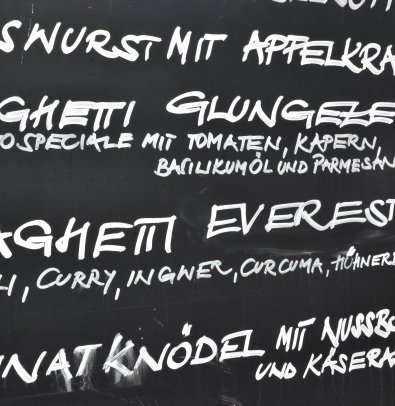 SWURST MIT APFELKRA
GHETTI GLUNGEZE
OSPECIALE MIT TOMATEN, KAPERN,
BASILIKUMÖL UND PARMESAN
AGHETTI EVEREST
LI, CURRY, INGWER, CURCUMA, HÜHNER
INATKNÖDEL MIT NUSSBU
UND KÄSERA